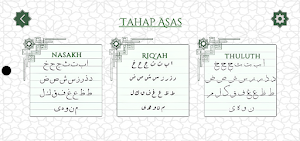 TAHAP ASAS
NASAKH
ا ب ت ث ج ح خ
د ذ ر ز س ش ص ض
ط ظ ع غ ف ق ك ل
م ن و ه ي
RIQ'AH
ا ب ت ث ج ح خ
د ذ ر ز س ش ص ض
ط ظ ع غ ف ق ك ل
THULUTH
ا ب ت ث ج ح خ
د ذ ر ز س ش ص ض